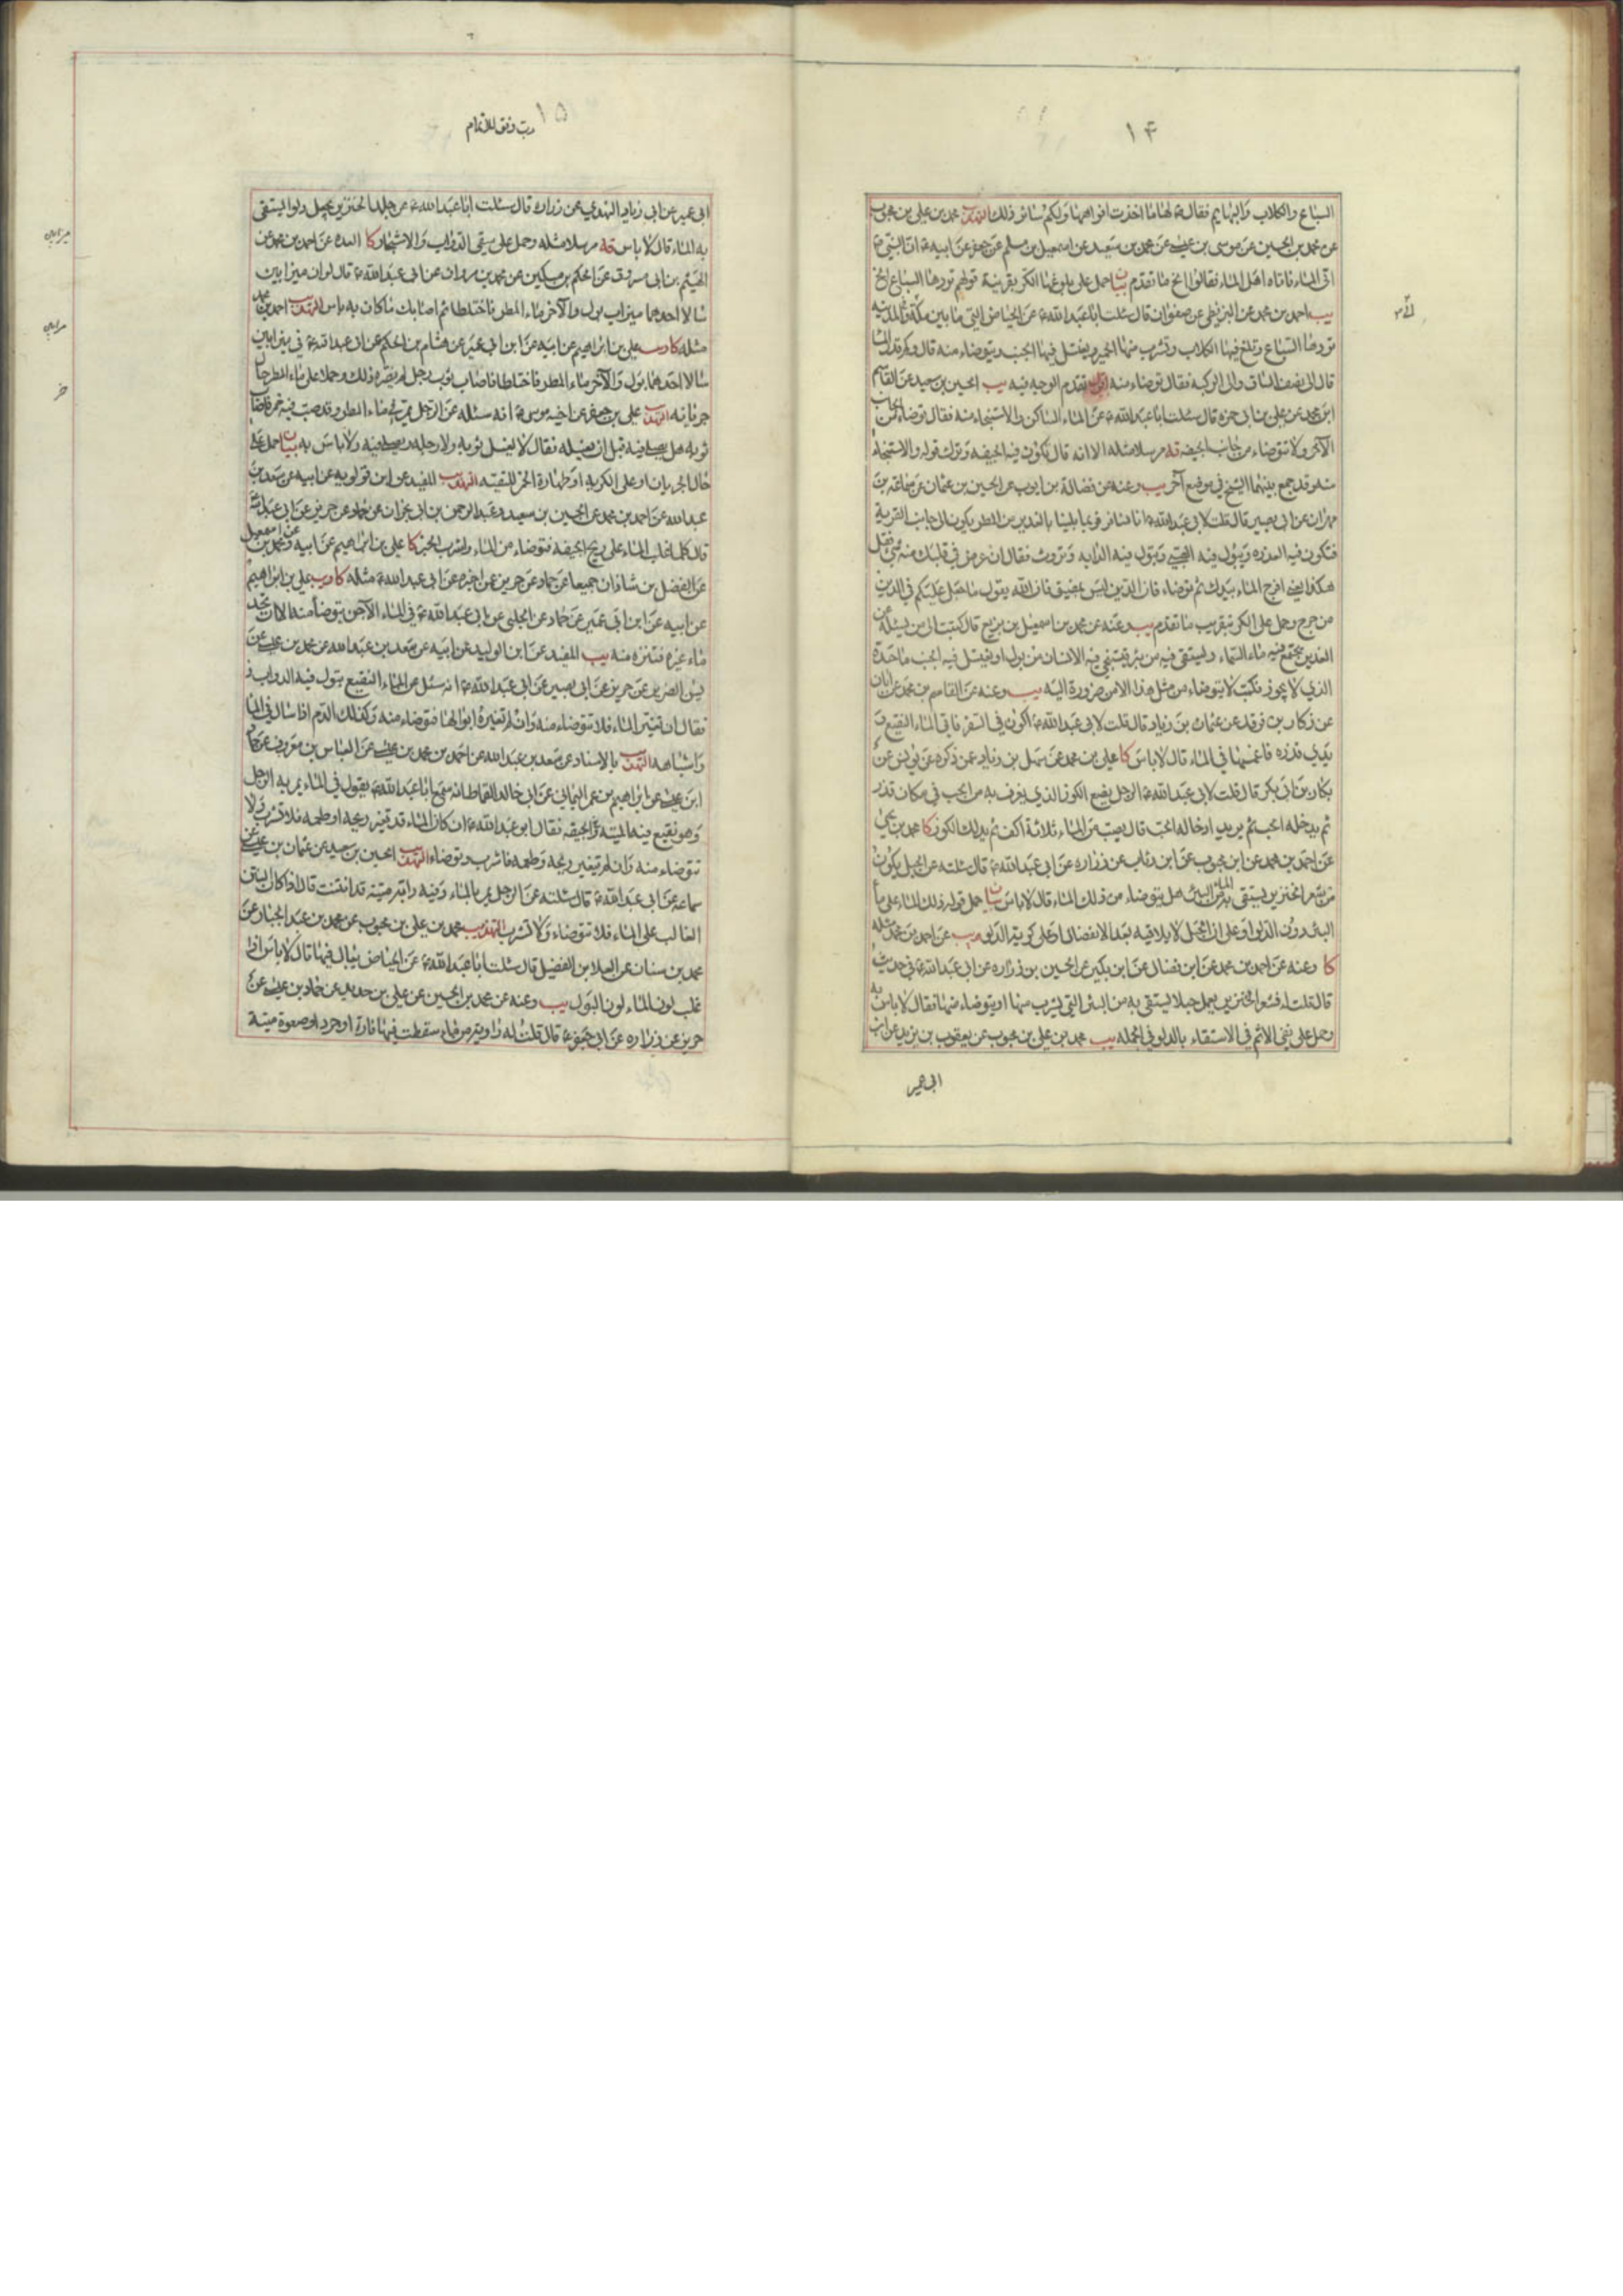 ١۴
السباع والكلاب والبهايم فقال ع لها ما اخذت افواهها ولكم سائر ذلك التهذيب محمد بن علي بن محبوب
عن محمد بن الحسين عن موسى بن عيسى عن محمد بن سعيد عن اسمعيل بن مسلم عن جعفر عن ابيه ع ان النبي ص
اتى الماء فاتاه اهل الماء فقالوا الخ ما تقدم بيان احمل على بلوغها الكر بقرينة قولهم تردها السباع الخ
يب احمد بن محمد عن البزنطي عن صفوان قال سئلت ابا عبد الله ع عن الحياض التي ما بين مكة والمدينه
تردها السباع وتلغ فيها الكلاب وتشرب منها الحمير ويغتسل فيها الجنب ويتوضاء منه قال وكم قدر الماء
قال الى نصف الساق والى الركبة فقال توضاء منه اقول تقدم الوجه فيه يب الحسين بن سعيد عن القاسم
ابن محمد عن علي بن ابي حمزه قال سئلت ابا عبد الله ع عن الماء الساكن والاستنجاء منه فقال توضاء من الجانب
الآخر ولا تتوضاء من جانب الجيفه قه مرسلا مثله الا انه قال يكون فيه الجيفه وترك قوله والاستنجاء
منه وقد جمع بينهما الشيخ في موضع آخر يب وعنه عن فضالة بن ايوب عن الحسين بن عثمان عن سماعة بن
مهران عن ابي بصير قال قلت لابي عبد الله ع انا نسافر فربما بلينا بالغدير من المطر يكون الى جانب القرية
فتكون فيه العذره ويبول فيه الصبي وتبول فيه الدابه وتروث فقال ان عرض في قلبك منه شئ فقل
هكذا يعني افرج الماء بيدك ثم توضاء فان الدين ليس بمضيق فان الله يقول ما جعل عليكم في الدين
من حرج وحمل على الكر بتقريب ما تقدم يب وعنه عن محمد بن اسمعيل بن بزيع قال كتبت الى من يسئله عن
الغدير يجتمع فيه ماء السماء ويستقى فيه من بئر فيستنجي فيه الانسان من بول او يغتسل فيه الجنب ما حده
الذي لا يجوز فكتب لا يتوضاء من مثل هذا الا من ضرورة اليه يب وعنه عن القاسم بن محمد عن ابان
عن زكار بن فرقد عن عثمان بن زياد قال قلت لابي عبد الله ع اكون في السفر فاتي الماء النقيع و
يدي قذره فاغمسها في الماء قال لا باس كا علي بن محمد عن سهل بن زياد عمن ذكره عن يونس عن
بكار بن ابي بكر قال قلت لابي عبد الله ع الرجل يضع الكوز الذي يغرف به من الحب في مكان قذر
ثم يدخله الحب ثم يريد ادخاله الحب قال يصب من الماء ثلاثة اكف ثم يدلك الكوز كا محمد بن يحيى
عن احمد بن محمد عن ابن محبوب عن ابن رئاب عن زراره عن ابي عبد الله ع قال سئلته عن الحبل يكون
من شعر الخنزير يستقى به الماء من البئر هل يتوضاء من ذلك الماء قال لا باس بيان حمل قوله ذلك الماء على ماء
البئر دون الدلو او على ان الحبل لا يلاقيه بعد الانفصال او على كرية الدلو ويب عن احمد بن محمد مثله
كا وعنه عن احمد بن محمد عن ابن فضال عن ابن بكير عن الحسين بن زراره عن ابي عبد الله ع في حديث
قال قلت له فشعر الخنزير يعمل حبلا يستقى به من البئر التي يشرب منها او يتوضاء منها فقال لا باس به
وحمل على نفي الاثم في الاستقاء بالدلو في الجمله يب محمد بن علي بن محبوب عن يعقوب بن يزيد عن ابن
ابي عمير
١۵
رب وفق للاتمام
ابي عمير عن ابي زياد النهدي عن زراره قال سئلت ابا عبد الله ع عن جلد الخنزير يجعل دلوا يستقى
به الماء قال لا باس قه مرسلا مثله وحمل على سقي الدواب والاشجار كا العده عن احمد بن محمد عن
الهيثم بن ابي مسروق عن الحكم بن مسكين عن محمد بن مروان عن ابي عبد الله ع قال لو ان ميزابين
سالا احدهما ميزاب بول والآخر ماء المطر فاختلطا ثم اصابك ما كان به باس التهذيب احمد بن محمد
مثله كا ويب علي بن ابراهيم عن ابيه عن ابن ابي عمير عن هشام بن الحكم عن ابي عبد الله ع في ميزابين
سالا احدهما بول والآخر ماء المطر فاختلطا فاصاب ثوب رجل لم يضره ذلك وحملا على ماء المطر حال
جريانه التهذيب علي بن جعفر عن اخيه موسى ع انه سئله عن الرجل يمر في ماء المطر وقد صب فيه خمر فاصاب
ثوبه هل يصلي فيه قبل ان يغسله فقال لا يغسل ثوبه ولا رجله ويصلي فيه ولا باس به بيان احمل على
حال الجريان او على الكرية او طهارة الخمر للتقيته التهذيب المفيد عن ابن قولويه عن ابيه عن سعد بن
عبد الله عن احمد بن محمد عن الحسين بن سعيد وعبد الرحمن بن ابي نجران عن حماد عن حريز عن ابي عبد الله ع
قال كلما غلب الماء على ريح الجيفه فتوضاء من الماء واشرب الخبر كا علي بن ابراهيم عن ابيه ومحمد بن اسمعيل
عن الفضل بن شاذان جميعا عن حماد عن حريز عمن اخبره عن ابي عبد الله ع مثله كا ويب علي بن ابراهيم
عن ابيه عن ابن ابي عمير عن حماد عن الحلبي عن ابي عبد الله ع في الماء الآجن يتوضأ منه الا ان تجد
ماء غيره فتنزه منه يب المفيد عن ابن الوليد عن ابيه عن سعد بن عبد الله عن محمد بن عيسى عن
يس الضرير عن حريز عن ابي بصير عن ابي عبد الله ع انه سئل عن الماء النقيع تبول فيه الدواب ف
فقال ان تغير الماء فلا تتوضاء منه وان لم تغيره ابوالها فتوضاء منه وكذلك الدم اذا سال في الماء
واشباهه التهذيب بالاسناد عن سعد بن عبد الله عن احمد بن محمد بن عيسى عن العباس بن معروف عن حماد
ابن عيسى عن ابراهيم بن عمر اليماني عن ابي خالد القماط انه سمع ابا عبد الله ع يقول في الماء يمر به الرجل
وهو نقيع فيه الميتة والجيفه فقال ابو عبد الله ع ان كان الماء قد تغير ريحه او طعمه فلا تشرب ولا
تتوضاء منه وان لم يتغير ريحه وطعمه فاشرب وتوضاء التهذيب الحسين بن سعيد عن عثمان بن عيسى عن
سماعه عن ابي عبد الله ع قال سئلته عن الرجل يمر بالماء وفيه دابة ميته قد انتنت قال اذا كان النتن
الغالب على الماء فلا تتوضاء ولا تشرب التهذيب محمد بن علي بن محبوب عن محمد بن عبد الجبار عن
محمد بن سنان عن العلا بن الفضيل قال سئلت ابا عبد الله ع عن الحياض يبال فيها قال لا باس اذا
غلب لون الماء لون البول يب وعنه عن محمد بن الحسين عن علي بن حديد عن حماد بن عيسى عن
حريز عن زراره عن ابي جعفر ع قال قلت له راوية من ماء سقطت فيها فارة او جرد او صعوة ميتة